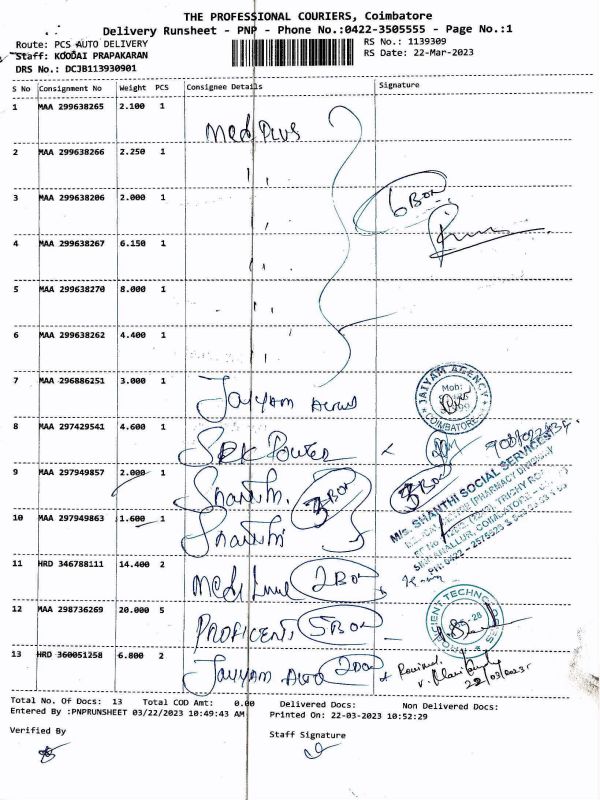 THE PROFESSIONAL COURIERS, Coimbatore
Delivery Runsheet - PNP - Phone No.:0422-3505555 - Page No.:1
Route: PCS AUTO DELIVERY
RS No.: 1139309
Staff: KOODAI PRAPAKARAN
RS Date: 22-Mar-2023
DRS No.: DCJB113930901
S No Consignment No Weight PCS Consignee Details Signature
1 MAA 299638265 2.100 1 Med Plus
2 MAA 299638266 2.250 1 " "
3 MAA 299638206 2.000 1 6 Box
4 MAA 299638267 6.150 1
5 MAA 299638270 8.000 1
6 MAA 299638262 4.400 1
7 MAA 296886251 3.000 1 Jaiyam
JAIYAM AGENCY
Mob:
COIMBATORE
8 MAA 297429541 4.600 1 SRK Power
9 MAA 297949857 2.000 1 Shanthi 3 Box 3 Box
M/s. SHANTHI SOCIAL SERVICES
10 MAA 297949863 1.600 1 Shanthi
11 HRD 346788111 14.400 2 2 Box
12 MAA 298736269 20.000 5 PROFICENT 5 Box
13 HRD 360051258 6.800 2 Jaiyam Auto 2 Box
Received
22/03/2023
Total No. Of Docs: 13 Total COD Amt: 0.00 Delivered Docs: Non Delivered Docs:
Entered By :PNPRUNSHEET 03/22/2023 10:49:43 AM Printed On: 22-03-2023 10:52:29
Verified By
Staff Signature